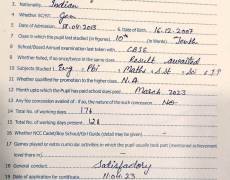 3. Nationality Indian
4. Whether SC/ST: Gen
5. Date of Admission: 18.04.2013 6. Date of Birth 16.12.2007
7. Class in which the pupil last studied (in figures) 10th (in Words) Tenth
8. School/Board Annual examination last taken with CBSE
9. Whether failed, if so once/twice in the same class Result awaited
10. Subjects Studied Eng Pbi Maths Sst Sci I.P
11. Whether qualified for promotion to the higher class N.A
12. Month upto which the Pupil has paid school dues paid March 2023
13. Any fee concession availed of: if so, the nature of such concession NO
14. Total No. of working days 174
15. Total No. of working days present 124
16. Whether NCC Cadet/Boy School/Girl Guide (detail may be given)
17. Games played or extra curricular activities in which the pupil usually took part (mentioned achievement level therein)
18. General conduct Satisfactory